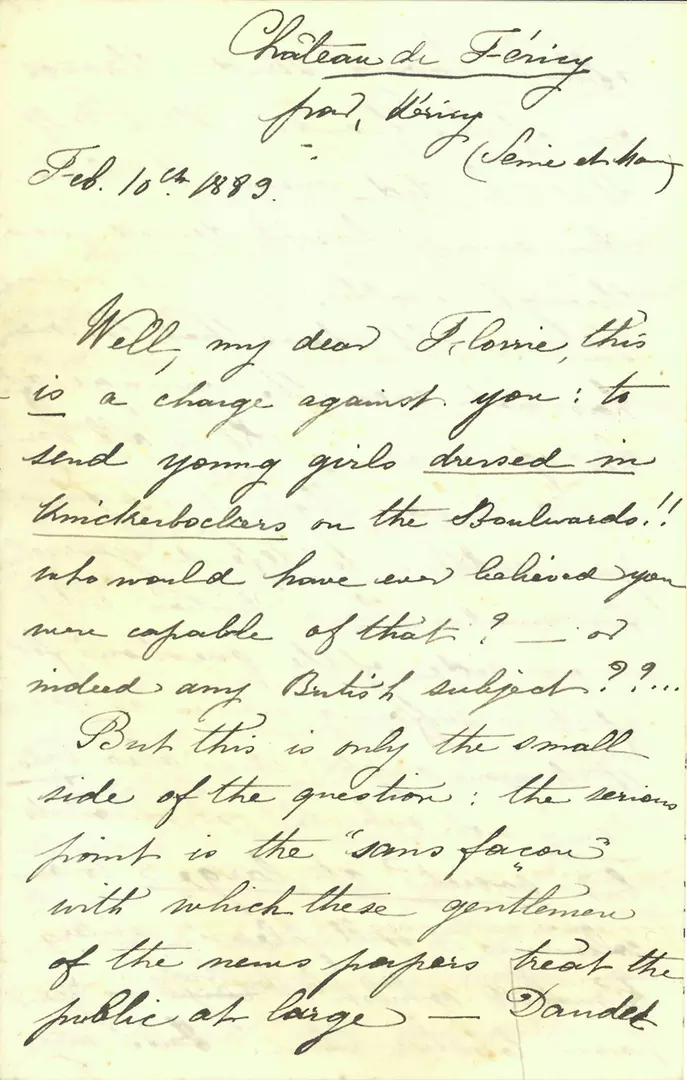 Château de Féricy
par, Héricy
(Seine et Marne)
Feb. 10th 1889.
Well, my dear Florrie, this
is a charge against you: to
send young girls dressed in
Knickerbockers on the Boulwards!!
who would have ever believed you
were capable of that? — or
indeed any British subject???...
But this is only the small
side of the question: the serious
point is the "sans façon"
with which these gentlemen
of the news papers treat the
public at large — Daudet